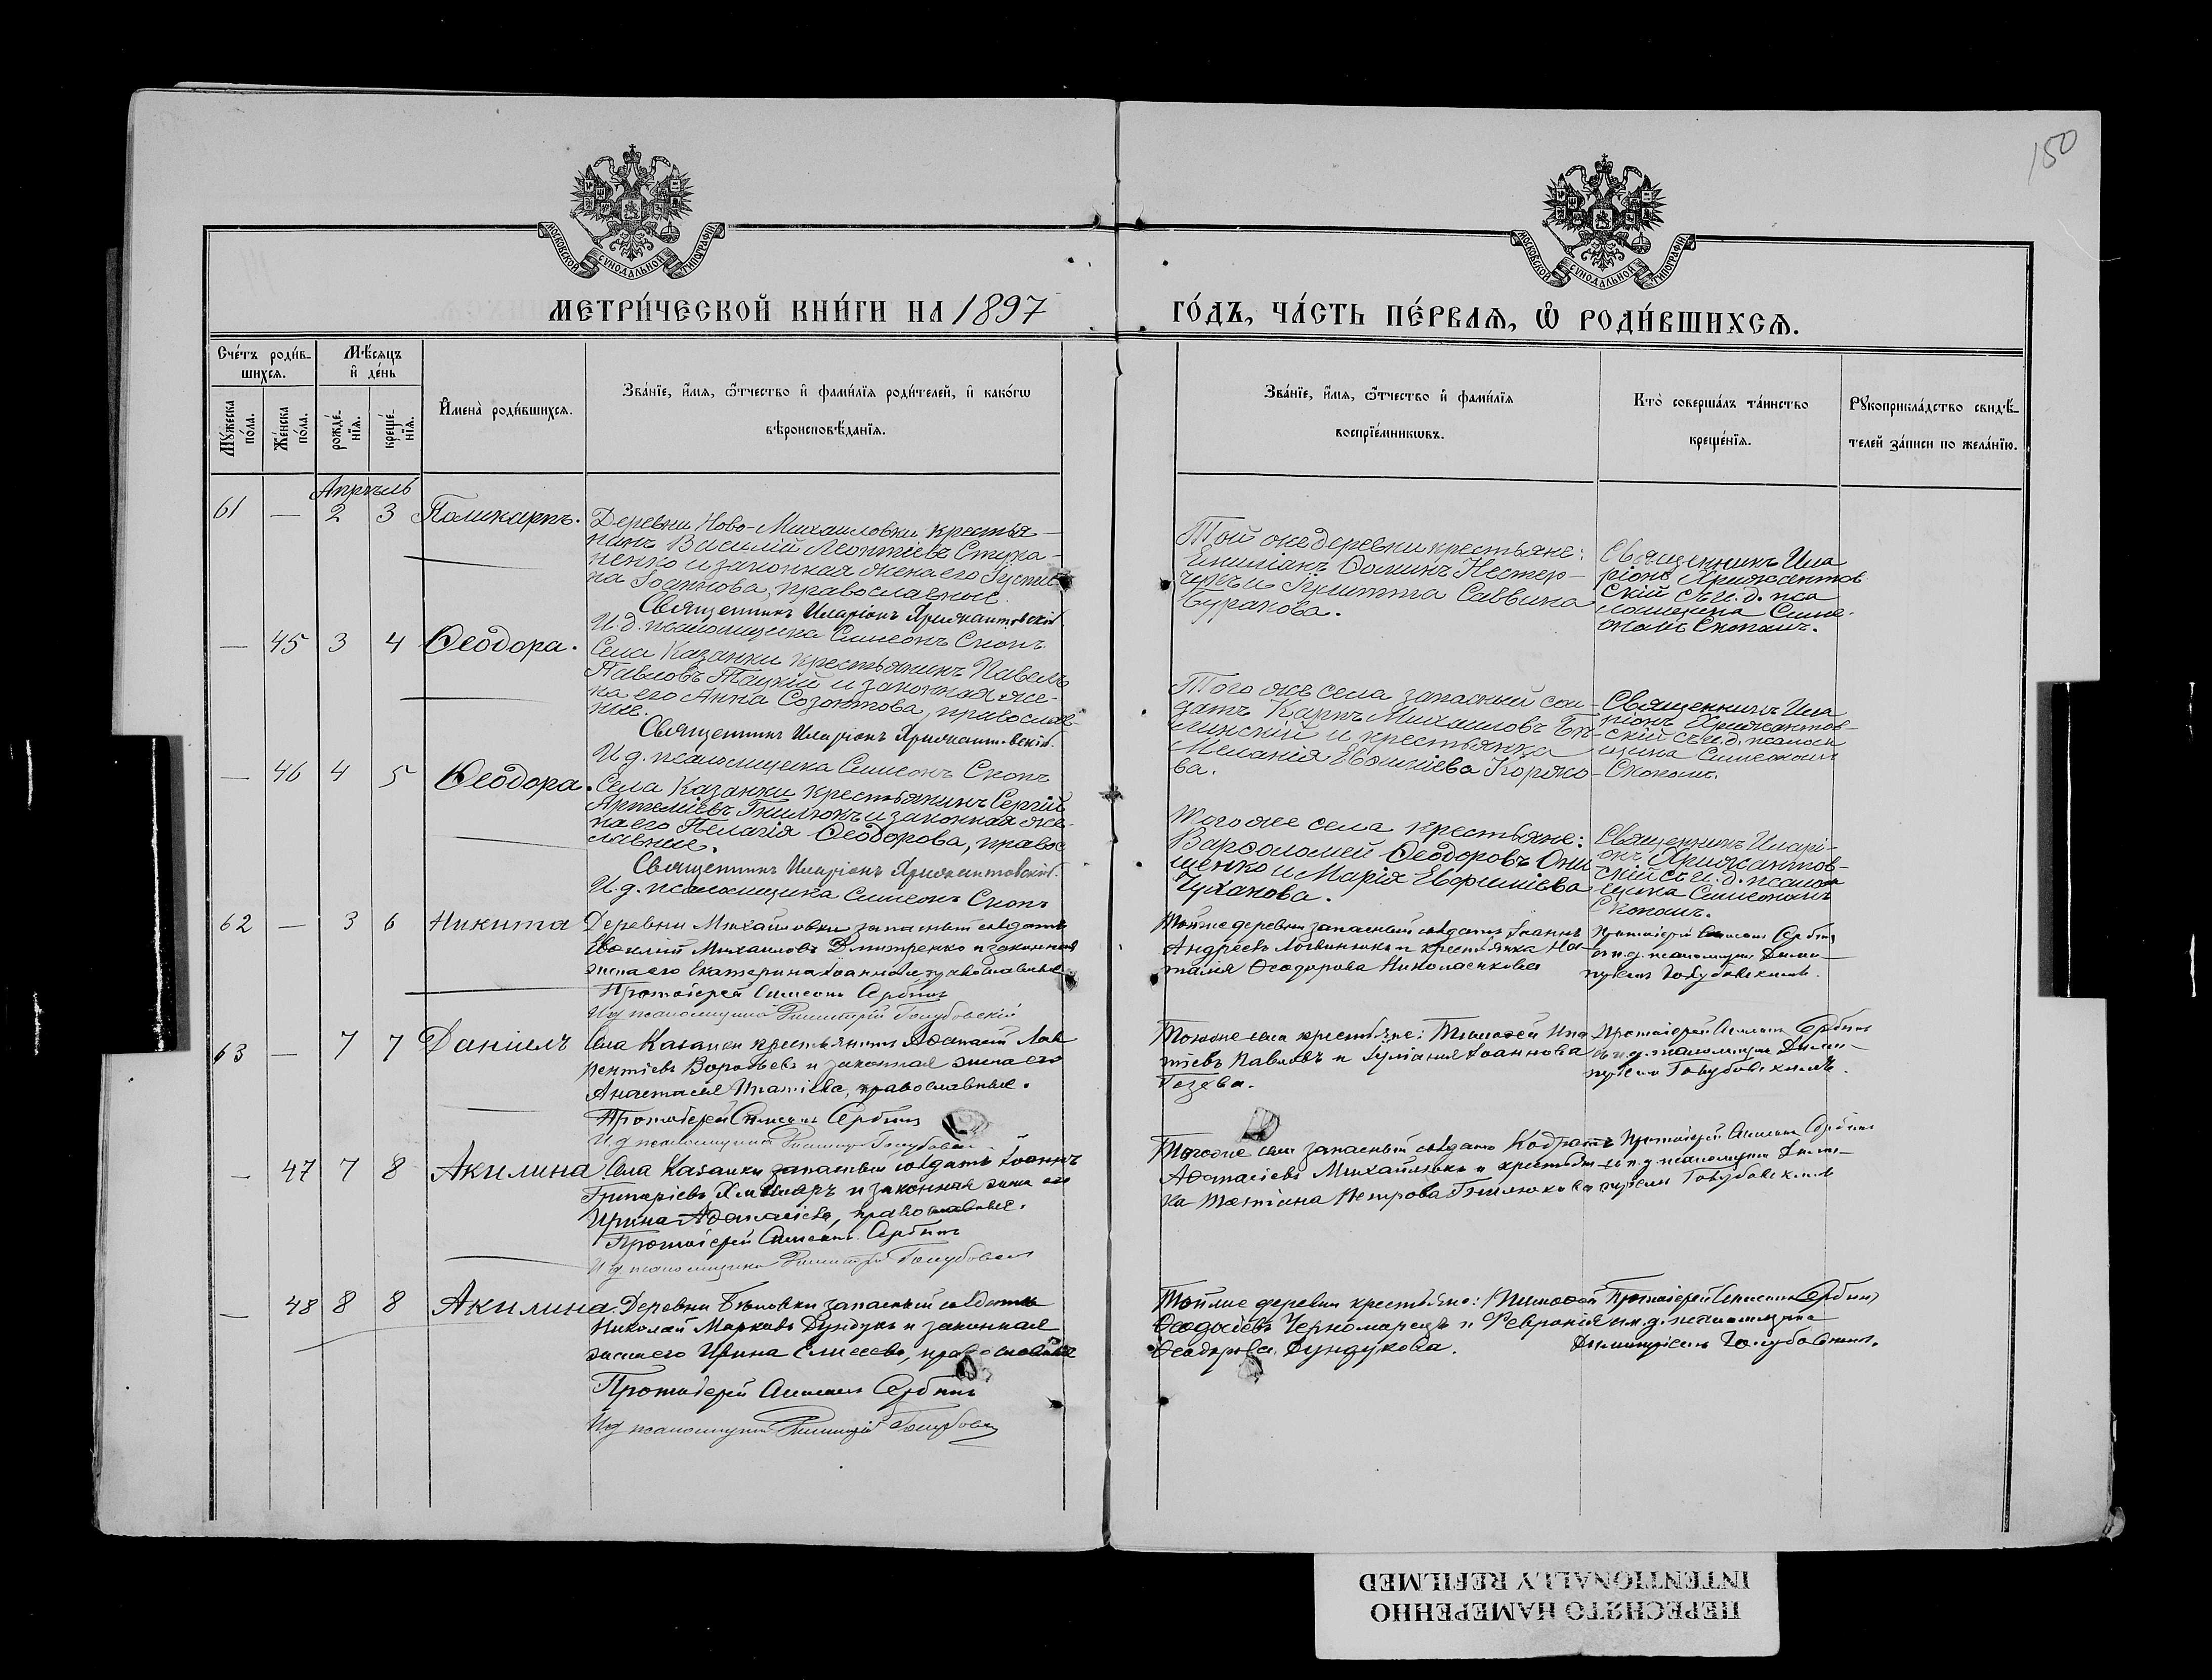 150
МОСКОВСКОЙ СѴНОДАЛЬНОЙ ТИПОГРАФІИ
МОСКОВСКОЙ СѴНОДАЛЬНОЙ ТИПОГРАФІИ
МЕТРИ́ЧЕСКОЙ КНИ́ГИ НА 1897
ГО́ДЪ, ЧА́СТЬ ПЕ́РВАѦ, Ѽ РОДИ́ВШИХСѦ.
Сче́тъ роди́в-
шихсѧ.
Мѣ́сяцъ
и҆ де́нь
Му́жеска
по́ла.
Же́нска
по́ла.
рожде́-
нїѧ.
креще́-
нїѧ.
И҆мена̀ роди́вшихсѧ.
Зва́нїе, и҆́мѧ, ѻ҆́тчество и҆ фами́лїѧ роди́телей, и҆ како́гѡ
вѣроисповѣ́данїѧ.
Зва́нїе, и҆́мѧ, ѻ҆́тчество и҆ фами́лїѧ
воспрїе́мникѡвъ.
Кто̀ соверша́лъ та́инство
креще́нїѧ.
Рꙋкоприкла́дство свидѣ́-
телей за́писи по жела́нїю.
Апрѣль
61 — 2 3 Поликарпъ.
Деревни Ново-Михаиловки крестья-
нинъ Василій Леонтіевъ
ненко и законная жена его Іусти-
на Іоаннова, православные.
Священникъ Иларіонъ Хрисантовскій
И. д. псаломщика Симеонъ Скопъ
Той же деревни крестьяне:
Емиліанъ Ѳоминъ Нестер-
чукъ и Іулитта Саввина
Буракова.
Священникъ Ила
ріонъ Хрисантов
скій съ и. д. пса
ломщика Симе-
ономъ Скопомъ.
— 45 3 4 Ѳеодора.
Села Казанки крестьянинъ Павелъ
Павловъ и законная же-
на его Анна Созонтова, православ-
ные.
Священникъ Иларіонъ Хрисантовскій.
И. д. псаломщика Симеонъ Скопъ
Того же села запасный сол-
датъ Карпъ Михаиловъ
линскій и крестьянка
Меланія
ва.
Священникъ Ила
ріонъ Хрисантов-
скій съ и. д. псалом
щика Симеономъ
Скопомъ.
— 46 4 5 Ѳеодора.
Села Казанки крестьянинъ Сергій
Артеміевъ Гнилюкъ и законная же-
на его Пелагія Ѳеодорова, право-
славные.
Священникъ Иларіонъ Хрисантовскій.
И. д. псаломщика Симеонъ Скопъ
Того же села крестьяне:
Варѳоломей Ѳеодоровъ Они
щенко и Марія Евфиміева
Чуханова.
Священникъ Иларі-
онъ Хрисантов-
скій съ и. д. псалом
щика Симеономъ
Скопомъ.
62 — 3 6 Никита
Деревни Михайловки запасный солдатъ
Михаиловъ Дмитренко и законная
жена его Екатерина Іоаннова православные
Протоіерей Симеонъ Сербинъ
И д псаломщика Димитрій Голубовскій
Той же деревни запасный солдатъ Іоаннъ
Андреевъ и крестьянка На-
талія Ѳеодорова Николаенкова
Протоіерей Симеонъ Сербинъ
съ и. д. псаломщика Дими-
тріемъ Голубовскимъ.
63 — 7 7 Даніилъ
Села Казанки крестьянинъ Аѳанасій Лав
рентіевъ Воробьевъ и законная жена его
Анастасія Игнатіева, православные.
Протоіерей Симеонъ Сербинъ
И. д псаломщика Димитрій Голубовскій
Того же села крестьяне: Тимоѳей Игна
тіевъ Павловъ и Іуліанія Іоаннова
Протоіерей Симеонъ Сербинъ
съ и. д. псаломщика Дими-
тріемъ Голубовскимъ.
— 47 7 8 Акилина
Села Казанки запасный солдатъ Іоаннъ
Григоріевъ и законная жена его
Ирина Аѳанасіева, православные.
Протоіерей Симеонъ Сербинъ
И д псаломщика Димитрій Голубовскій
Того же села запасный солдатъ Кодратъ
Аѳанасіевъ и крестьян-
ка Татіана Петрова Гнилюкова
Протоіерей Симеонъ Сербинъ
съ и. д псаломщика Дими-
тріемъ Голубовскимъ
— 48 8 8 Акилина.
Деревни запасный солдатъ
Николай Марковъ Дундукъ и законная
жена его Ирина Елисеева, православные
Протоіерей Симеонъ Сербинъ
И д псаломщика Димитрій Голубовскій
Той же деревни крестьяне: Тимоѳей
Ѳеодосіевъ Черноморецъ и Февронія
Ѳеодорова Дундукова.
Протоіерей Симеонъ Сербинъ
съ и. д. псаломщика
Димитріемъ Голубовскимъ.
ПЕРЕСНЯТО НАМЕРЕННО
INTENTIONALLY REFILMED